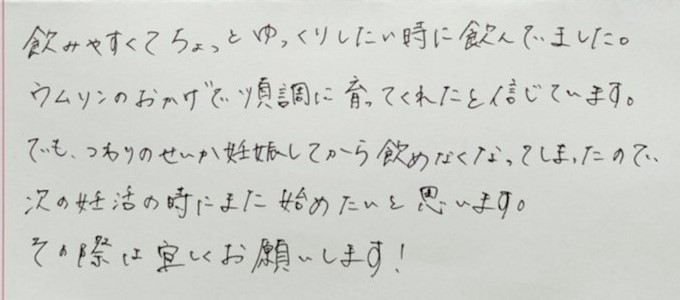 飲みやすくてちょっとゆっくりしたい時に飲んでいました。
ウムリンのおかげで順調に育ってくれたと信じています。
でも、つわりのせいか妊娠してから飲めなくなってしまったので、
次の妊活の時にまた始めたいと思います。
その際は宜しくお願いします!